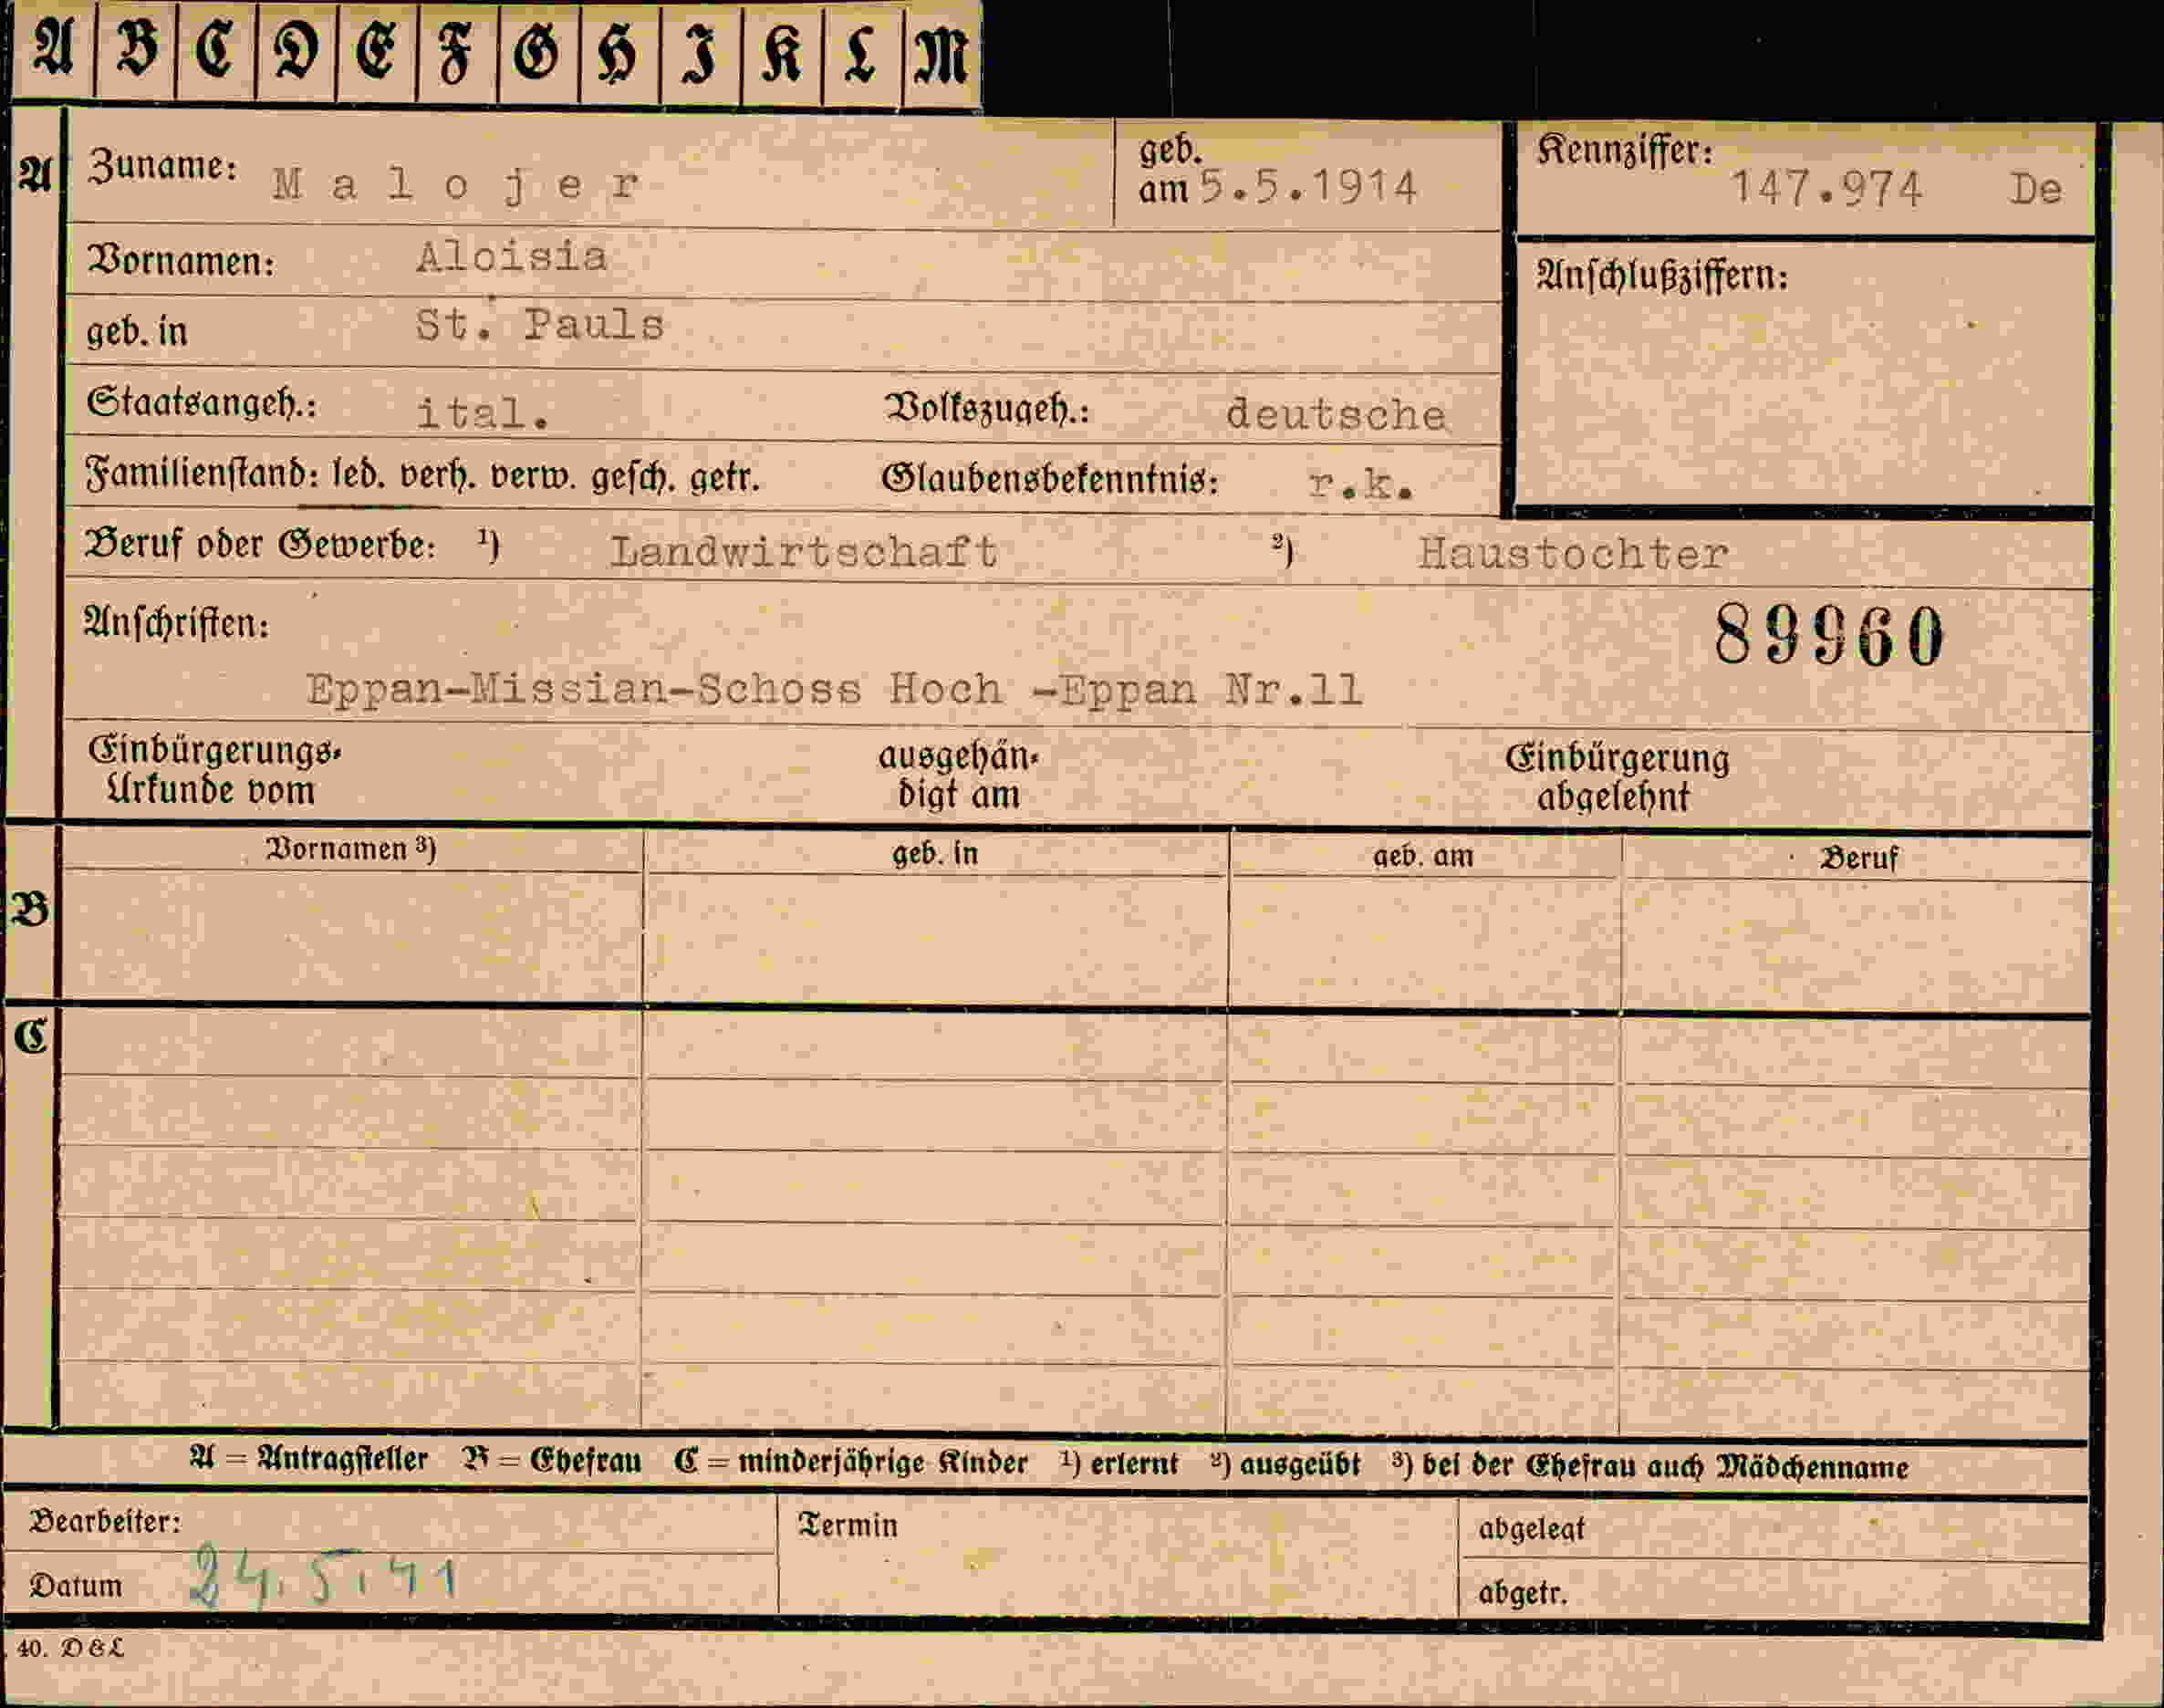 A B C D E F G H I K L M
A Zuname: Malojer geb. am 5.5.1914 Kennziffer: 147.974 De
Vornamen: Aloisia Anschlußziffern:
geb. in St. Pauls
Staatsangeh.: ital. Volkszugeh.: deutsche
Familienstand: led. verh. verw. gesch. getr. Glaubensbekenntnis: r.k.
Beruf oder Gewerbe: ¹) Landwirtschaft ²) Haustochter
Anschriften: 89960
Eppan-Missian-Schoss Hoch -Eppan Nr.11
Einbürgerungs- ausgehän- Einbürgerung
Urkunde vom digt am abgelehnt
Vornamen ³) geb. in geb. am Beruf
B
C
A = Antragsteller B = Ehefrau C = minderjährige Kinder ¹) erlernt ²) ausgeübt ³) bei der Ehefrau auch Mädchenname
Bearbeiter: Termin abgelegt
Datum 24.5.41 abgetr.
40. D&L